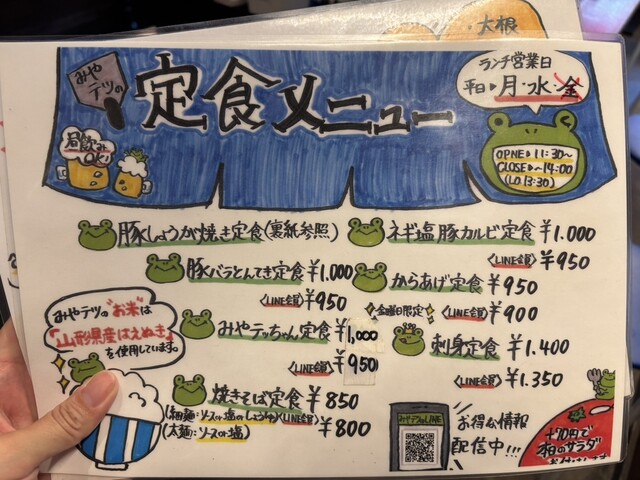 大根
みや
テツの
定食メニュー
ランチ営業日
平日▶月・水・金
昼飲み
OK!
OPNE▶11:30〜
CLOSE▶〜14:00
(L.O 13:30)
豚しょうが焼き定食(裏紙参照)
ネギ塩豚カルビ定食 ¥1.000
<LINE会員> ¥950
豚バラとんてき定食 ¥1.000
<LINE会員> ¥950
からあげ定食 ¥950
<LINE会員> ¥900
みやテツの"お米"は
"山形県産はえぬき"
を使用しています。
みやテッちゃん定食 ¥1,000
<LINE会員> ¥950
金曜日限定
刺身定食 ¥1.400
<LINE会員> ¥1.350
焼きそば定食 ¥850
(細麺:ソースor塩orしょうゆ)<LINE会員> ¥800
(太麺:ソースor塩)
みやテツのLINE
お得な情報
配信中!!!
+70円で
本日のサラダ